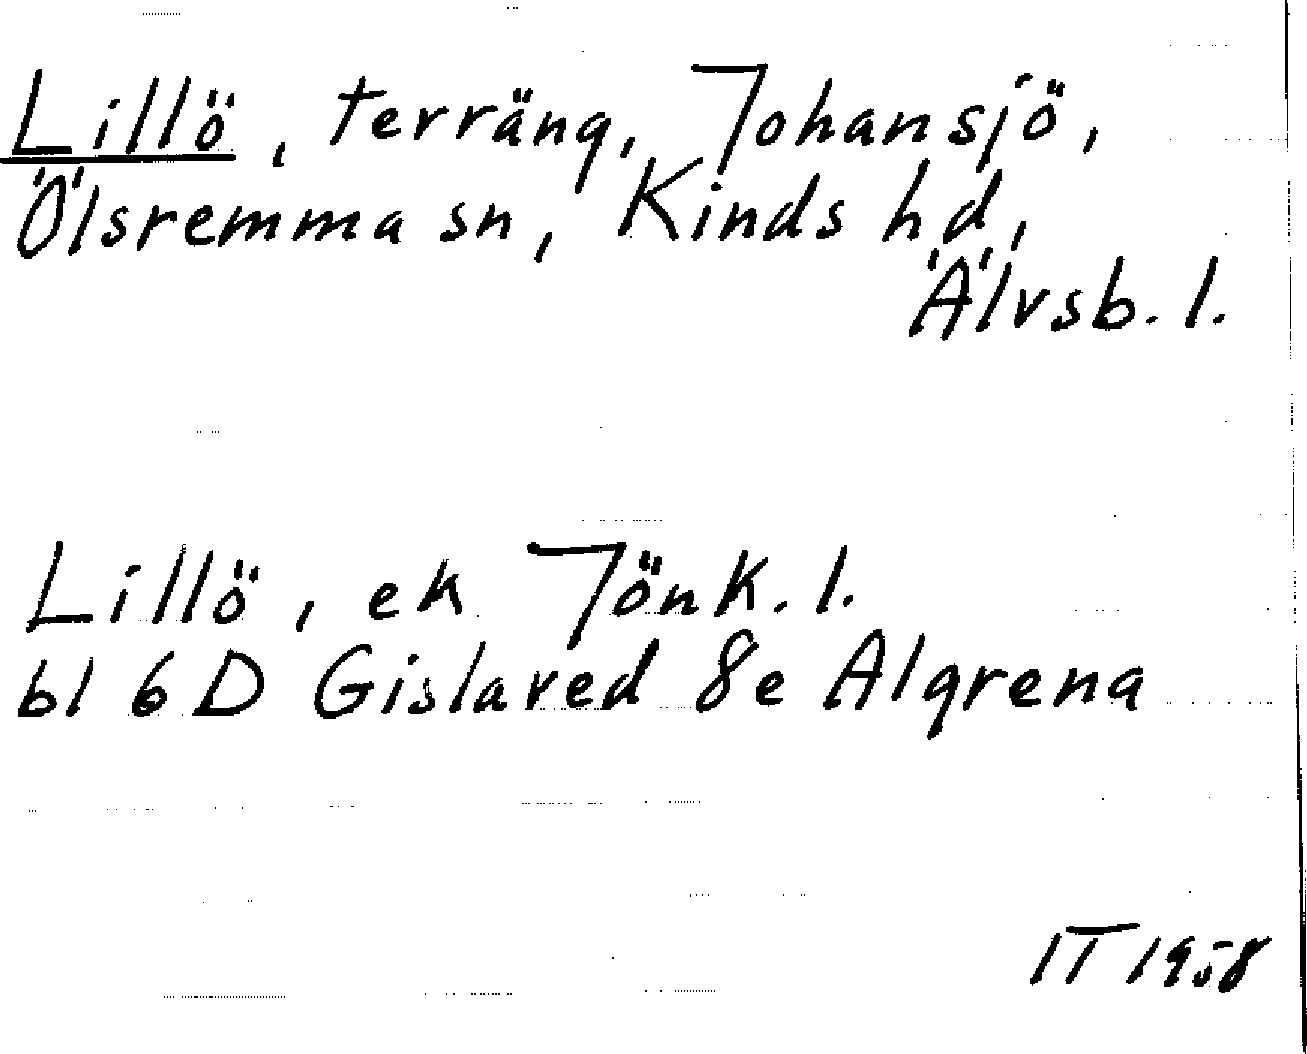 Lillö, terräng, Johansjö,
Ölsremma sn, Kinds hd,
Älvsb. l.
Lillö, ek Jönk. l.
bl 6 D Gislaved 8e Algrena
IT 1958